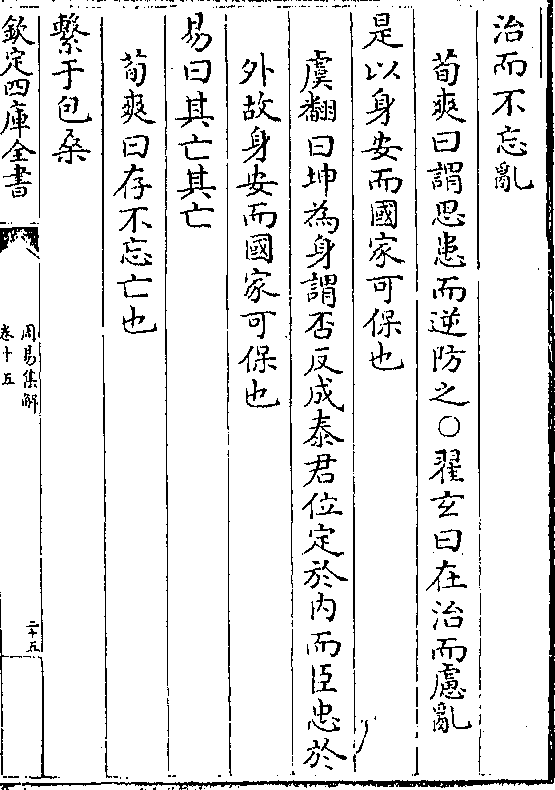 治而不忘亂
荀爽曰謂思患而逆防之○翟玄曰在治而慮亂
是以身安而國家可保也
虞翻曰坤為身謂否反成泰君位定於内而臣忠於
外故身安而國家可保也
易曰其亡其亡
荀爽曰存不忘亡也
繫于包桑
欽定四庫全書
周易集解
卷十五
二十五